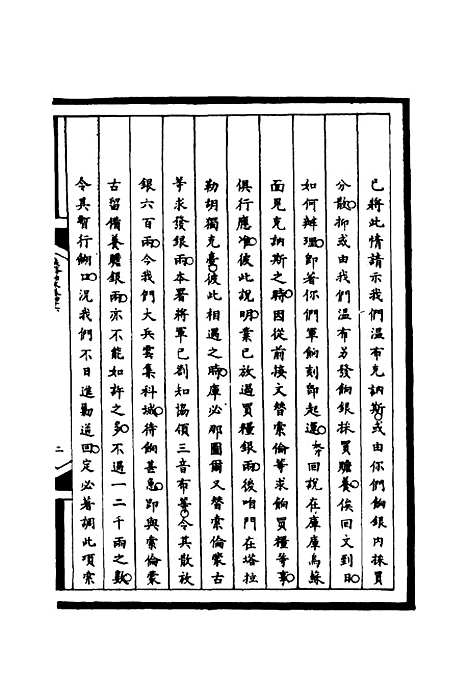 已將此情請示我們溫布克訥斯或由你們餉銀內採買
分散抑或由我們溫布另發餉銀採買贍養俟回文到日
如何辦理即著你們軍餉刻即起運
回説在庫庫烏蘇
面見克訥斯之時因從前接文替索倫等求餉買糧等事
俱行應准彼此説明業已放過買糧銀兩後咱門在塔拉
勒胡獨克臺彼此相遇之時庫必那圖爾又替索倫蒙古
等求發銀兩本署將軍已劄知協領三音布等令其散放
銀六百兩今我們大兵雲集科城待餉甚急即與索倫蒙
古留備養贍銀兩亦不能如許之多不過一二千兩之數
令其暫行餬口況我們不日進勦道回定必著調此項索
二